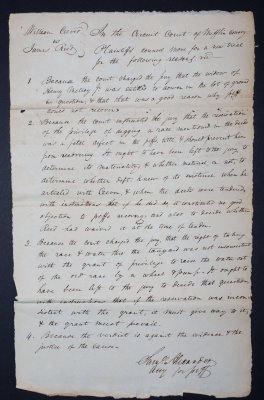 William
vs
James Reed
In the Circuit Court of Mifflin County
Plaintiffs counsel moves for a new trial
for the following reasons, viz
1 Because the court charged the jury that the widow of
Henry was entitled to dower in the lot of ground
in question, & that that was a good reason why plff
should not recover
2. Because the court instructed the jury that the reservation
of the privilege of digging a race mentioned in the deed
was a fatal defect in the plffs title & should prevent him
from recovering. It ought to have been left to the jury to
determine its materiality & whether material or not, to
determine whether deft. knew of its existence when he
articled with & when the deeds were tendered,
with instructions that if he did so it constituted no good
objection to plffs recovery and also to decide whether
Reed had waived it at the time of tender.
3. Because the court charged the jury that the right of
the race & water thro the tanyard was not inconsistent
with the grant of privilege to raise the water out
of the old race by a wheel & pump. It ought to
have been left to the jury to decide that question
with instructions that if the reservation was incon-
sistent with the grant, it must give way to it,
& the grant must prevail.
4. Because the verdict is against the evidence & the
justice of the cause.
Saml Alexander
Atty for plff